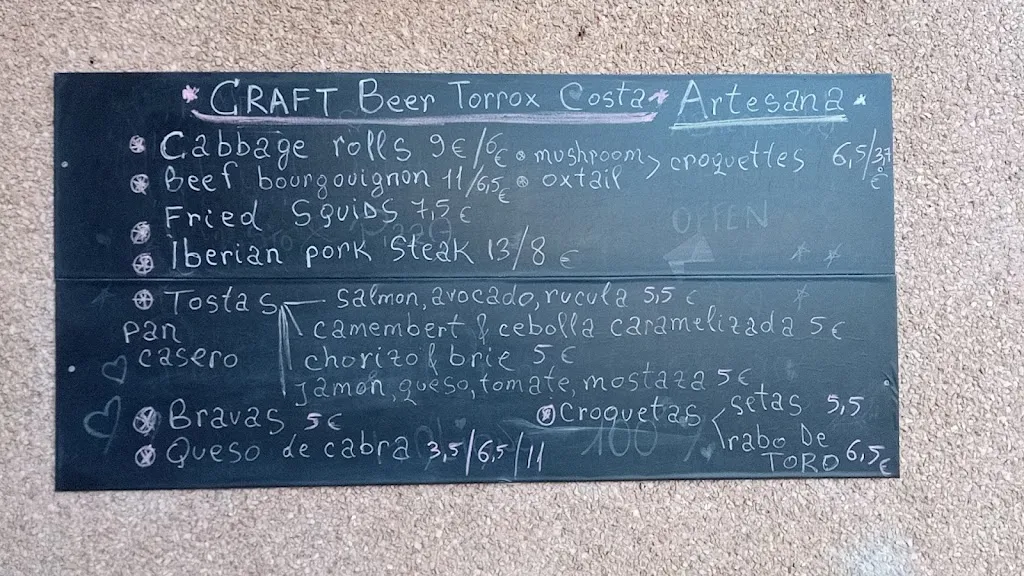 * CRAFT Beer Torrox Costa * Artesana *
Cabbage rolls 9€/6€ • mushroom > croquettes 6,5/3,7€
Beef bourgouignon 11/6,5€ • oxtail
Fried Squids 7,5€
OFFEN
Iberian pork Steak 13/8 €
Tostas salmon, avocado, rucula 5,5 €
pan casero
camembert & cebolla caramelizada 5€
chorizo & brie 5€
jamón, queso, tomate, mostaza 5€
Bravas 5€
Croquetas setas 5,5
rabo De TORO 6,5€
100%
Queso de cabra 3,5/6,5/11